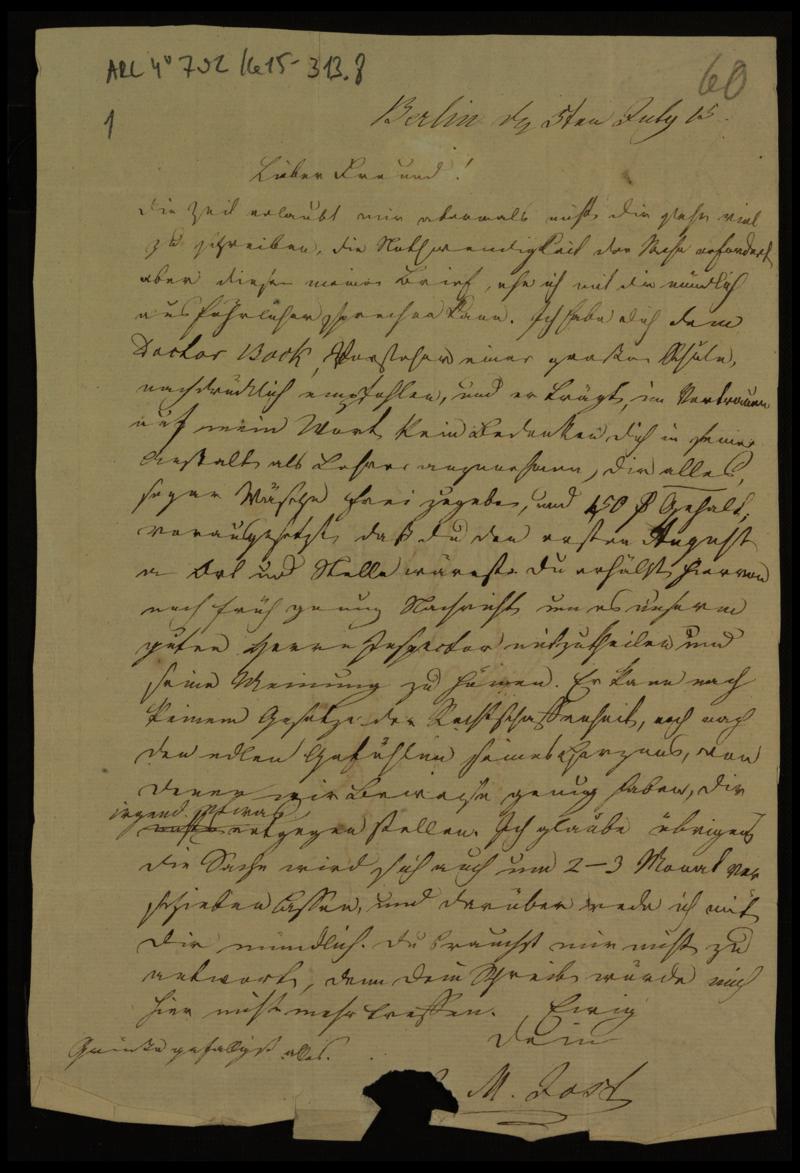 ARC 4° 792 / C15-313.8
60
1
Berlin d 5ten July 15
Lieber Freund!
Die Zeit erlaubt mir abermals nicht dir sehr viel
zu schreiben, die Nothwendigkeit der Sache erfordert
aber diesen meinen Brief, ehe ich mit dir mündlich
ausführlicher sprechen kann. Ich habe dich dem
Doctor Bock, Vorsteher einer großen Schule,
nachdrücklich empfohlen, und er trägt, im Vertrauen
auf mein Wort kein Bedenken dich in seiner
Anstalt als Lehrer anzunehmen, dir alles,
sogar Wäsche frei zu geben, und 150 Gehalt;
vorausgesetzt daß du den ersten August
an Ort und Stelle wärest. Du erhältst hiervon
noch früh genug Nachricht um es unserm
guten Herrn Inspector mitzutheilen und
seine Meinung zu hören. Er kann nach
keinem Gesetze der Rechtschaffenheit, noch nach
den edlen Gefühlen seines Herzens, von
denen wir Beweise genug haben, dir
irgend etwas
entgegen stellen. Ich glaube übrigens
die Sache wird sich auch um 2-3 Monat ver
schieben lassen, und darüber rede ich mit
dir mündlich. Du brauchst mir nicht zu
antworten, denn dein Schreiben würde mich
hier nicht mehr treffen. Ewig
dein
alles.
M. Jost